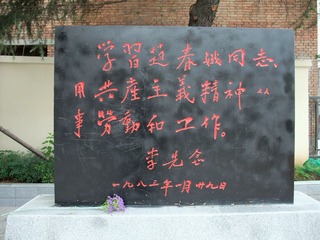 学習赵春娥同志、
用共産主義精神从
事勞動和工作。
李先念
一九八三年一月廿九日